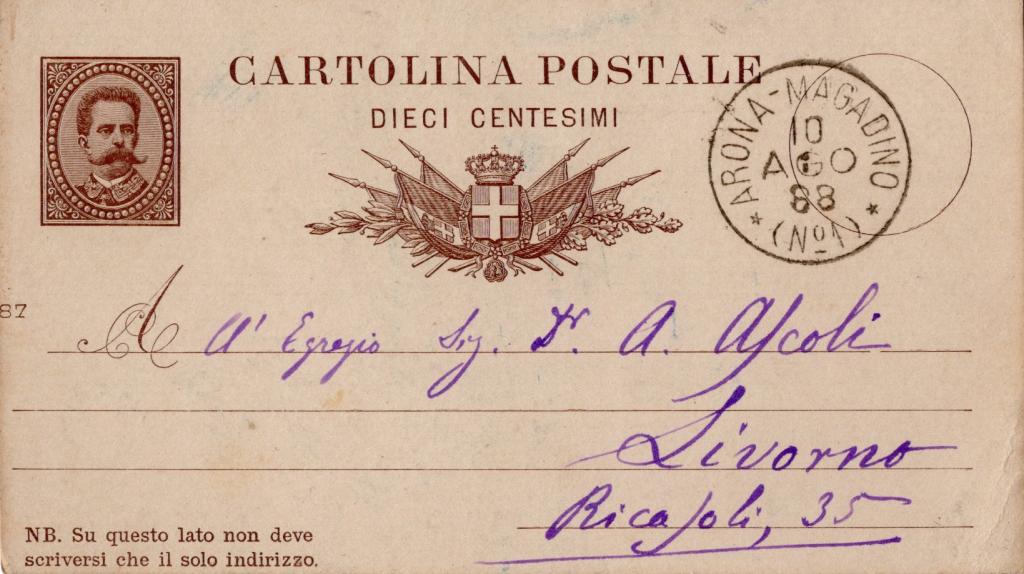 CARTOLINA POSTALE
DIECI CENTESIMI
ARONA-MAGADINO
10
AGO
88
* (No1) *
87
A All' Egregio Sig. Dr. A. Ascoli
Livorno
Ricasoli, 35
NB. Su questo lato non deve
scriversi che il solo indirizzo.